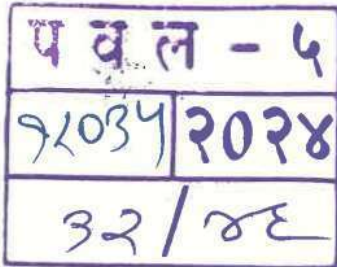 प व ल - ५
१८०३५ २०२४
३२ / ४६